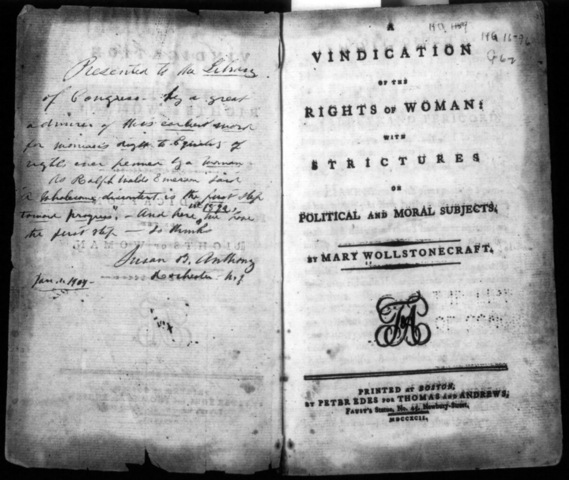 Presented to the Library
of Congress by a great
admirer of this earliest work
for woman's right to Equality of
rights ever penned by a woman
As Ralph Waldo Emerson said
"A wholesome discontent is the first step
toward progress." And here, in 1792, we have
the first step — so thinks
Susan B. Anthony
Rochester N.Y
Jan. 1. 1904 -
A
VINDICATION
OF THE
RIGHTS OF WOMAN:
WITH
STRICTURES
ON
POLITICAL AND MORAL SUBJECTS,
BY MARY WOLLSTONECRAFT.
PRINTED AT BOSTON,
BY PETER EDES FOR THOMAS AND ANDREWS,
FAUST'S Statue, No. 45, Newbury-Street,
MDCCXCII.